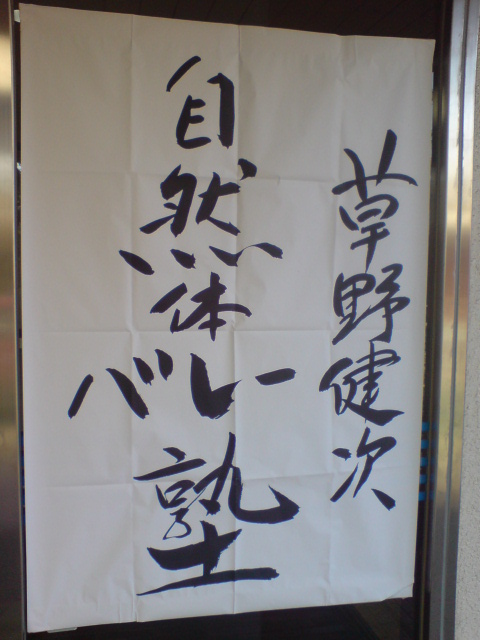 草野健次
自然体
バレー
塾